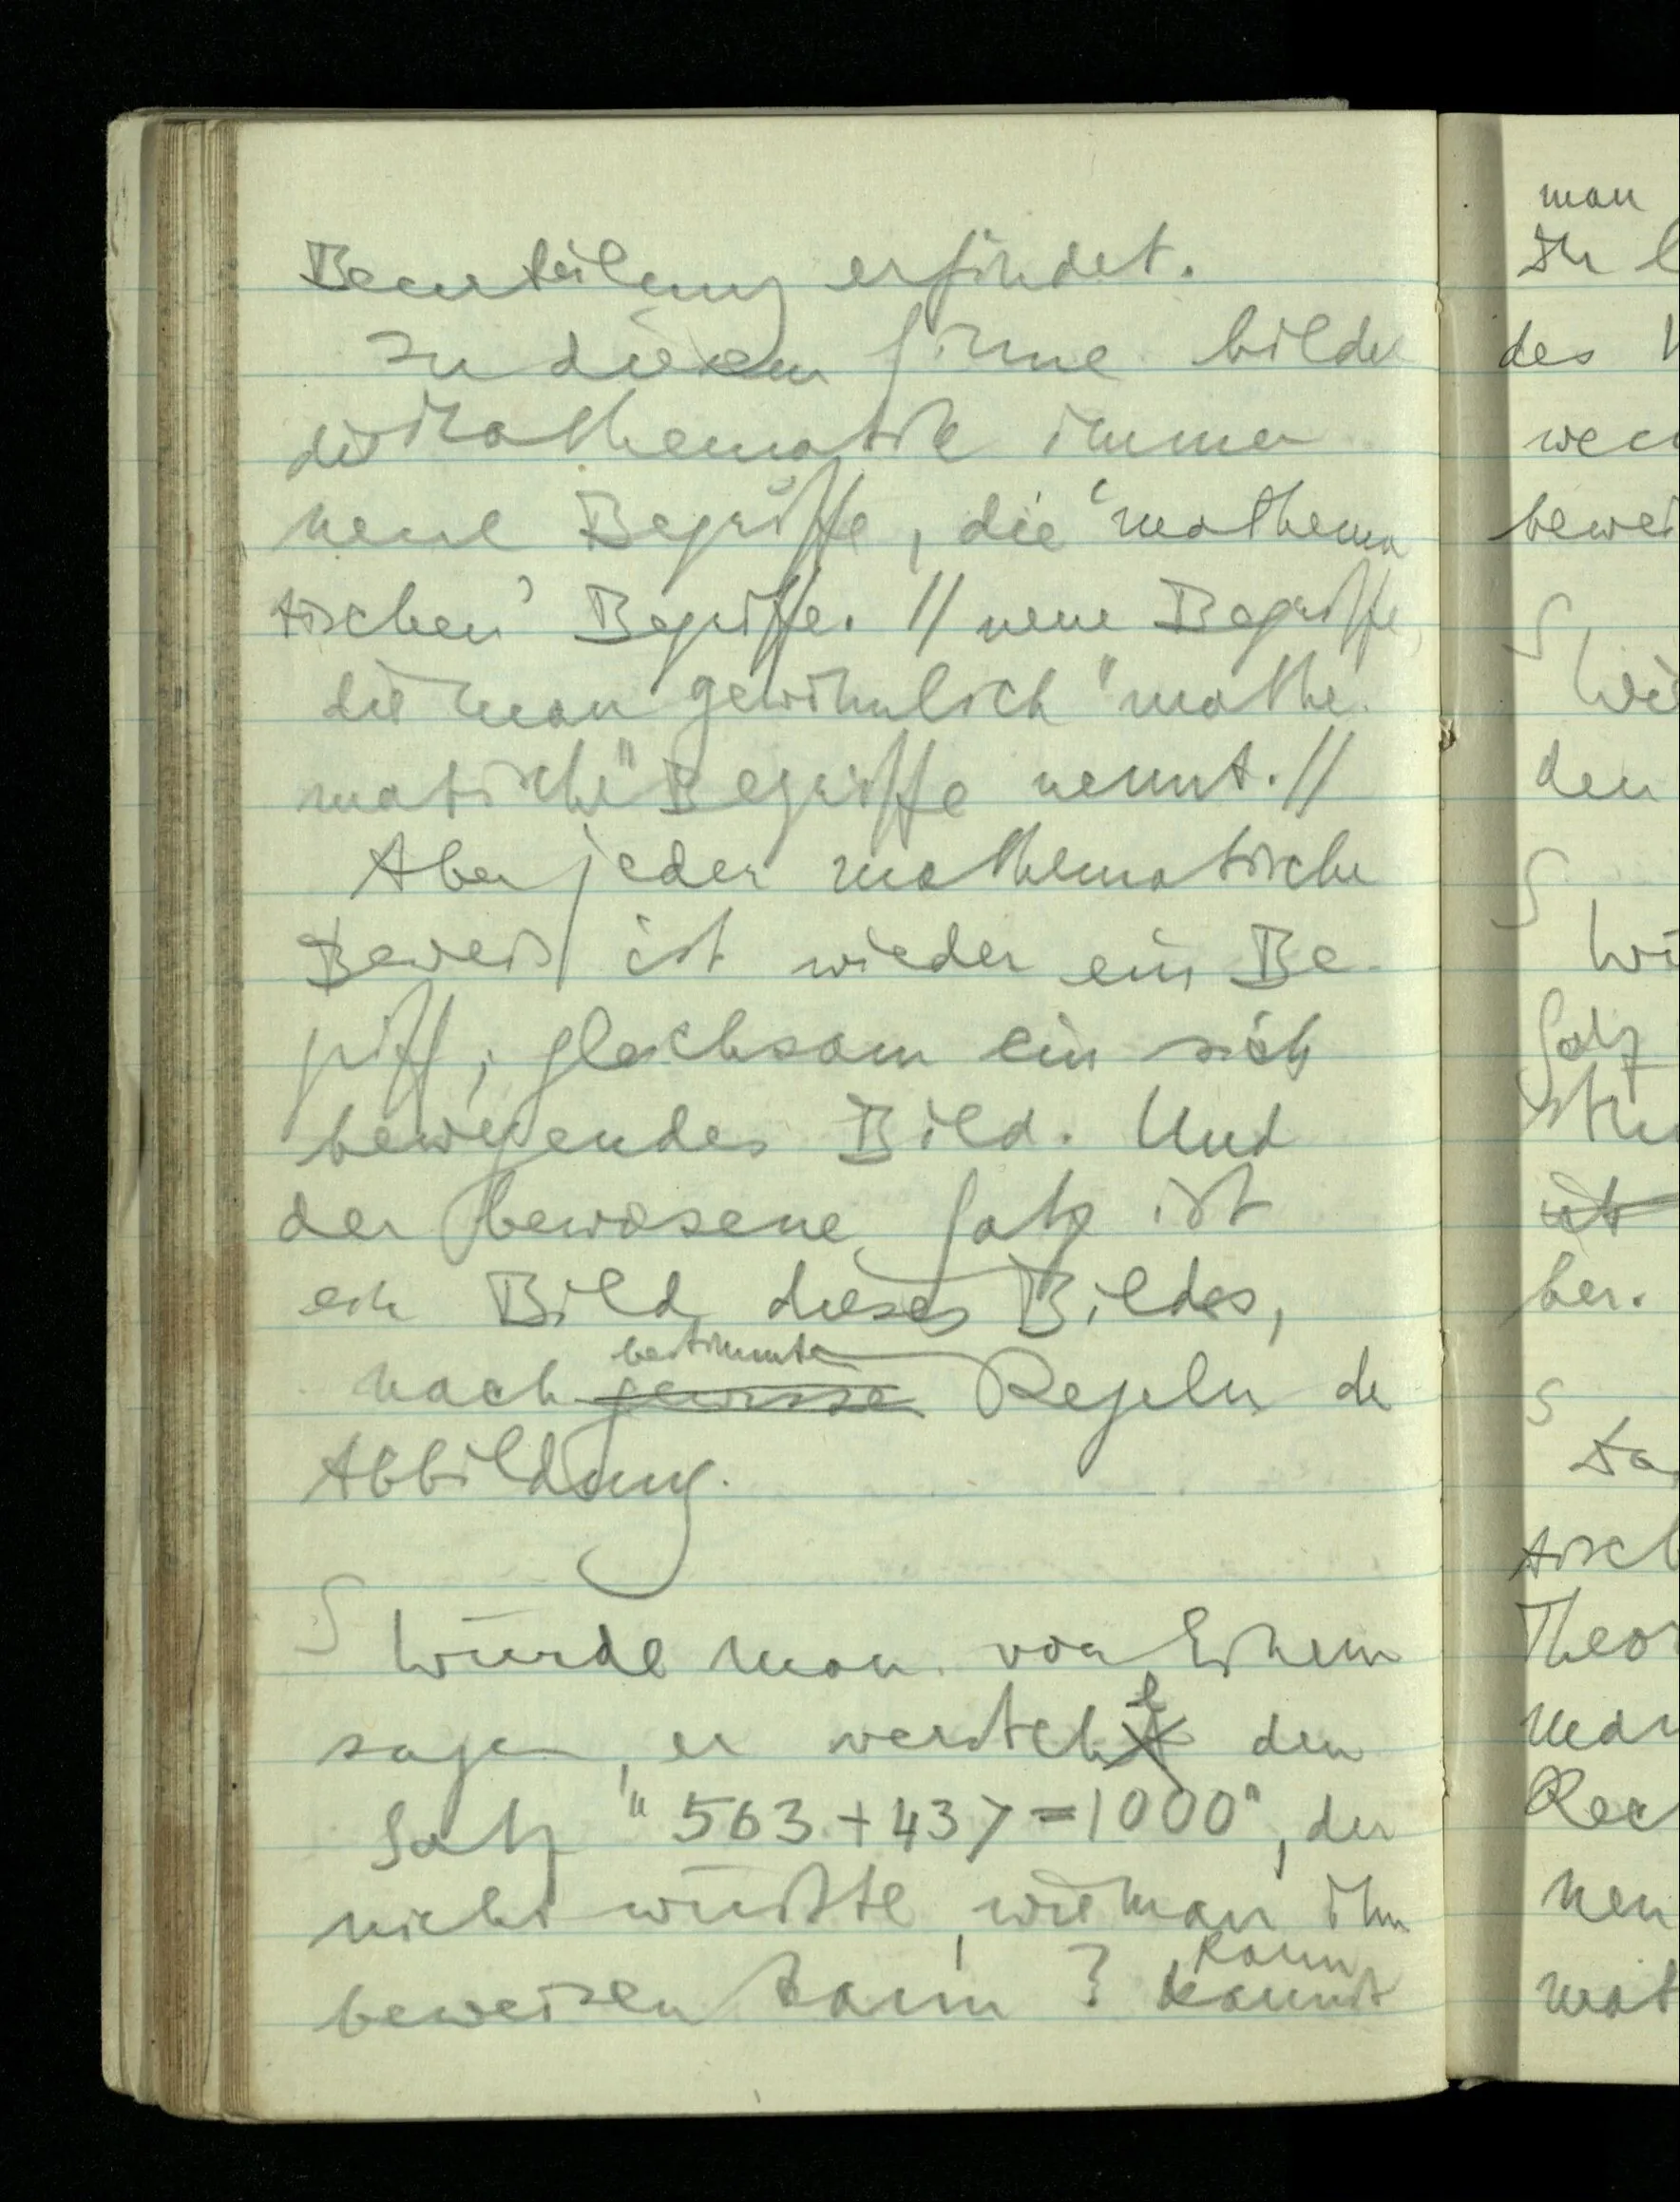 Beurteilung erfindet.
In diesem Sinne bildet
die Mathematik immer
neue Begriffe, die 'mathema
tischen' Begriffe. // neue Begriffe,
die man gewöhnlich "mathe-
matische" Begriffe nennt. //
Aber jeder mathematische
Beweis ist wieder ein Be-
griff, gleichsam ein sich
bewegendes Bild. Und
der bewiesene Satz ist
ein Bild dieses Bildes,
bestimmten
nach gewissen Regeln der
Abbildung.
S Würde man von Einem
sagen, er verstehe den
Satz "563 + 437 = 1000", der
nicht wüßte, wie man ihn
kann
beweisen kann? kannst
man
Ihr
des
bewei
S
Wie
den
S
Wi
Satz
ber.
S
tisch
Theor
Rec
nen
mat